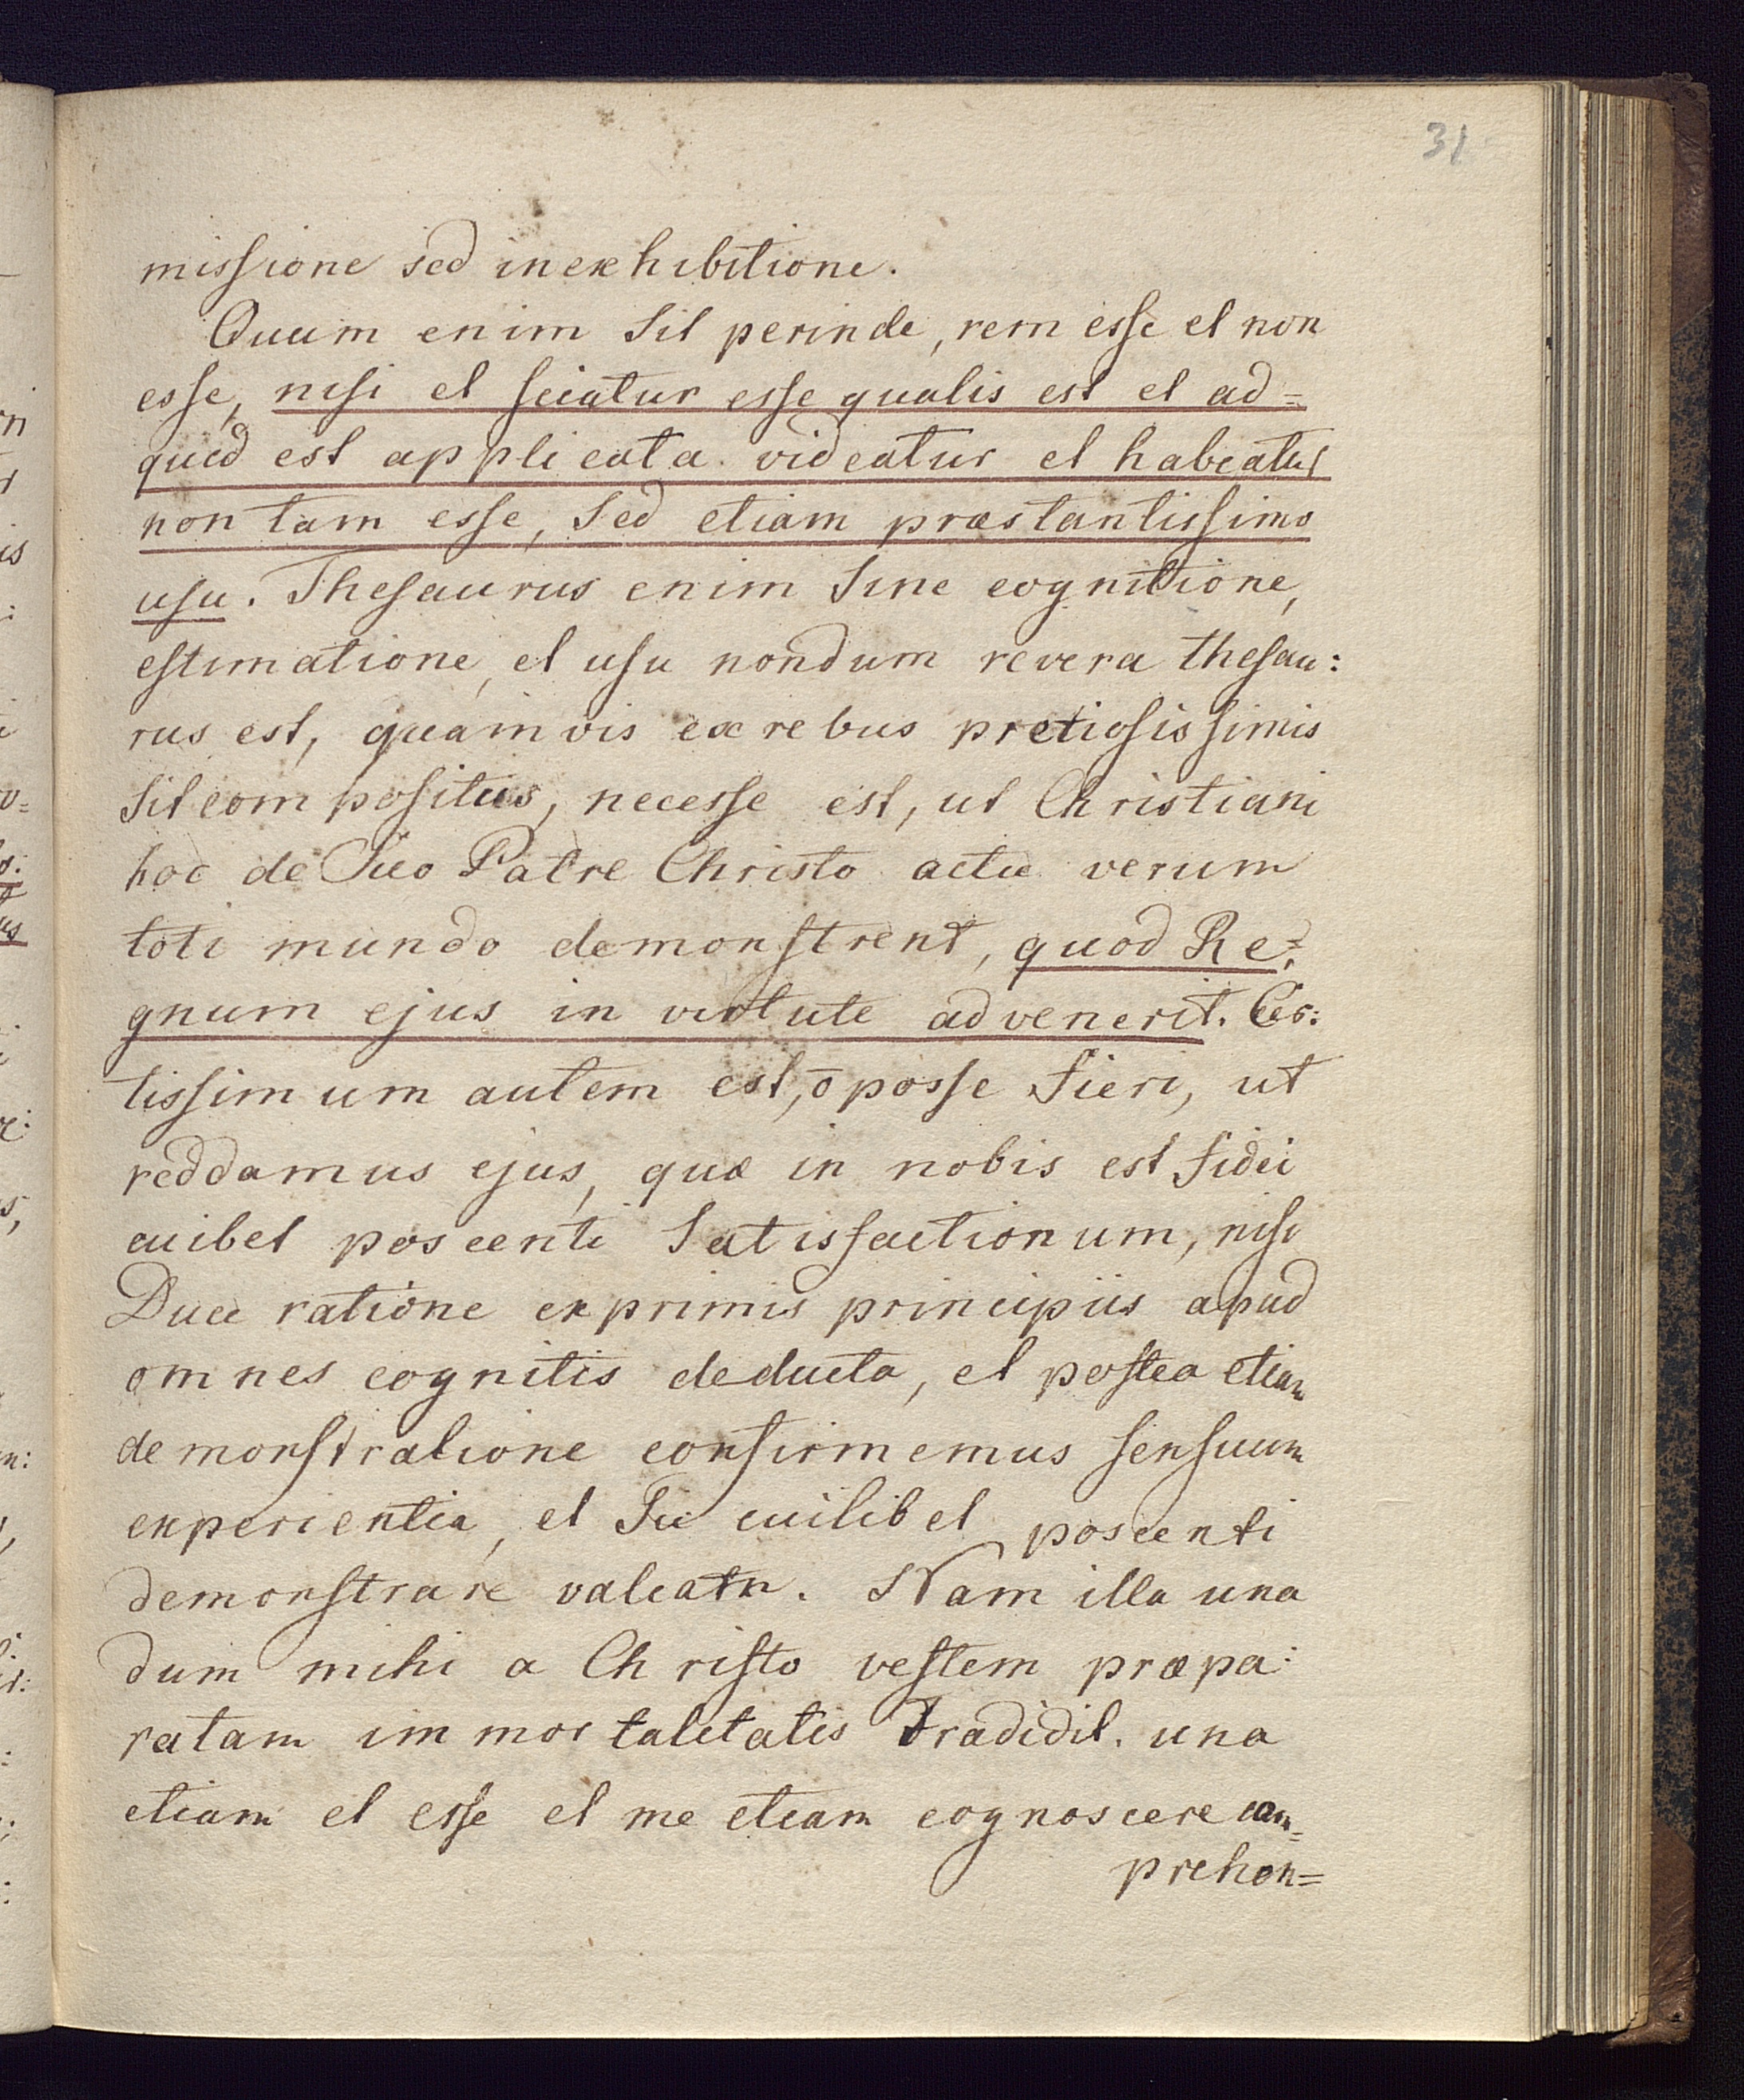 31
missione sed in exhibitione.
Quum enim sit perinde, rem esse et non
esse, nisi et sciatur esse qualis est et ad=
quid est applicata videatur et habeatur
non tam esse, sed etiam præstantissimo
usu. Thesaurus enim sine cognitione,
estimatione, et usu nondum revera thesau:
rus est, quamvis ex rebus pretiosissimis
sit compositus, necesse est, ut Christiani
hoc de suo Patre Christo actu verum
toti mundo demonstrent, quod Re=
gnum ejus in virtute advenerit. Cer:
tissimum autem est, ō posse fieri, ut
reddamus ejus, quæ in nobis est fidei
cuibet poscenti satisfactionum, nisi
Duce ratione ex primis principiis apud
omnes cognitis deducta, et postea etiam
demonstratione confirmemus sensuum
experientia, et sic cuilibet poscenti
demonstrare valeatn. Nam illa una
dum mihi a Christo vestem præpa:
ratam immortalitatis tradidit. una
etiam et esse et me etiam cognoscere com=
prehen=